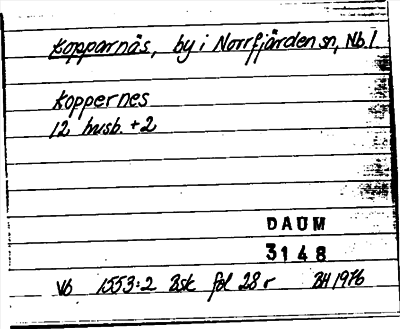 Kopparnäs, by i Norrfjärden sn, Nb.l
Koppernes
12 husb. + 2
DAUM
3148
Vb 1553:2 Bsk fol 28 r BH 1976